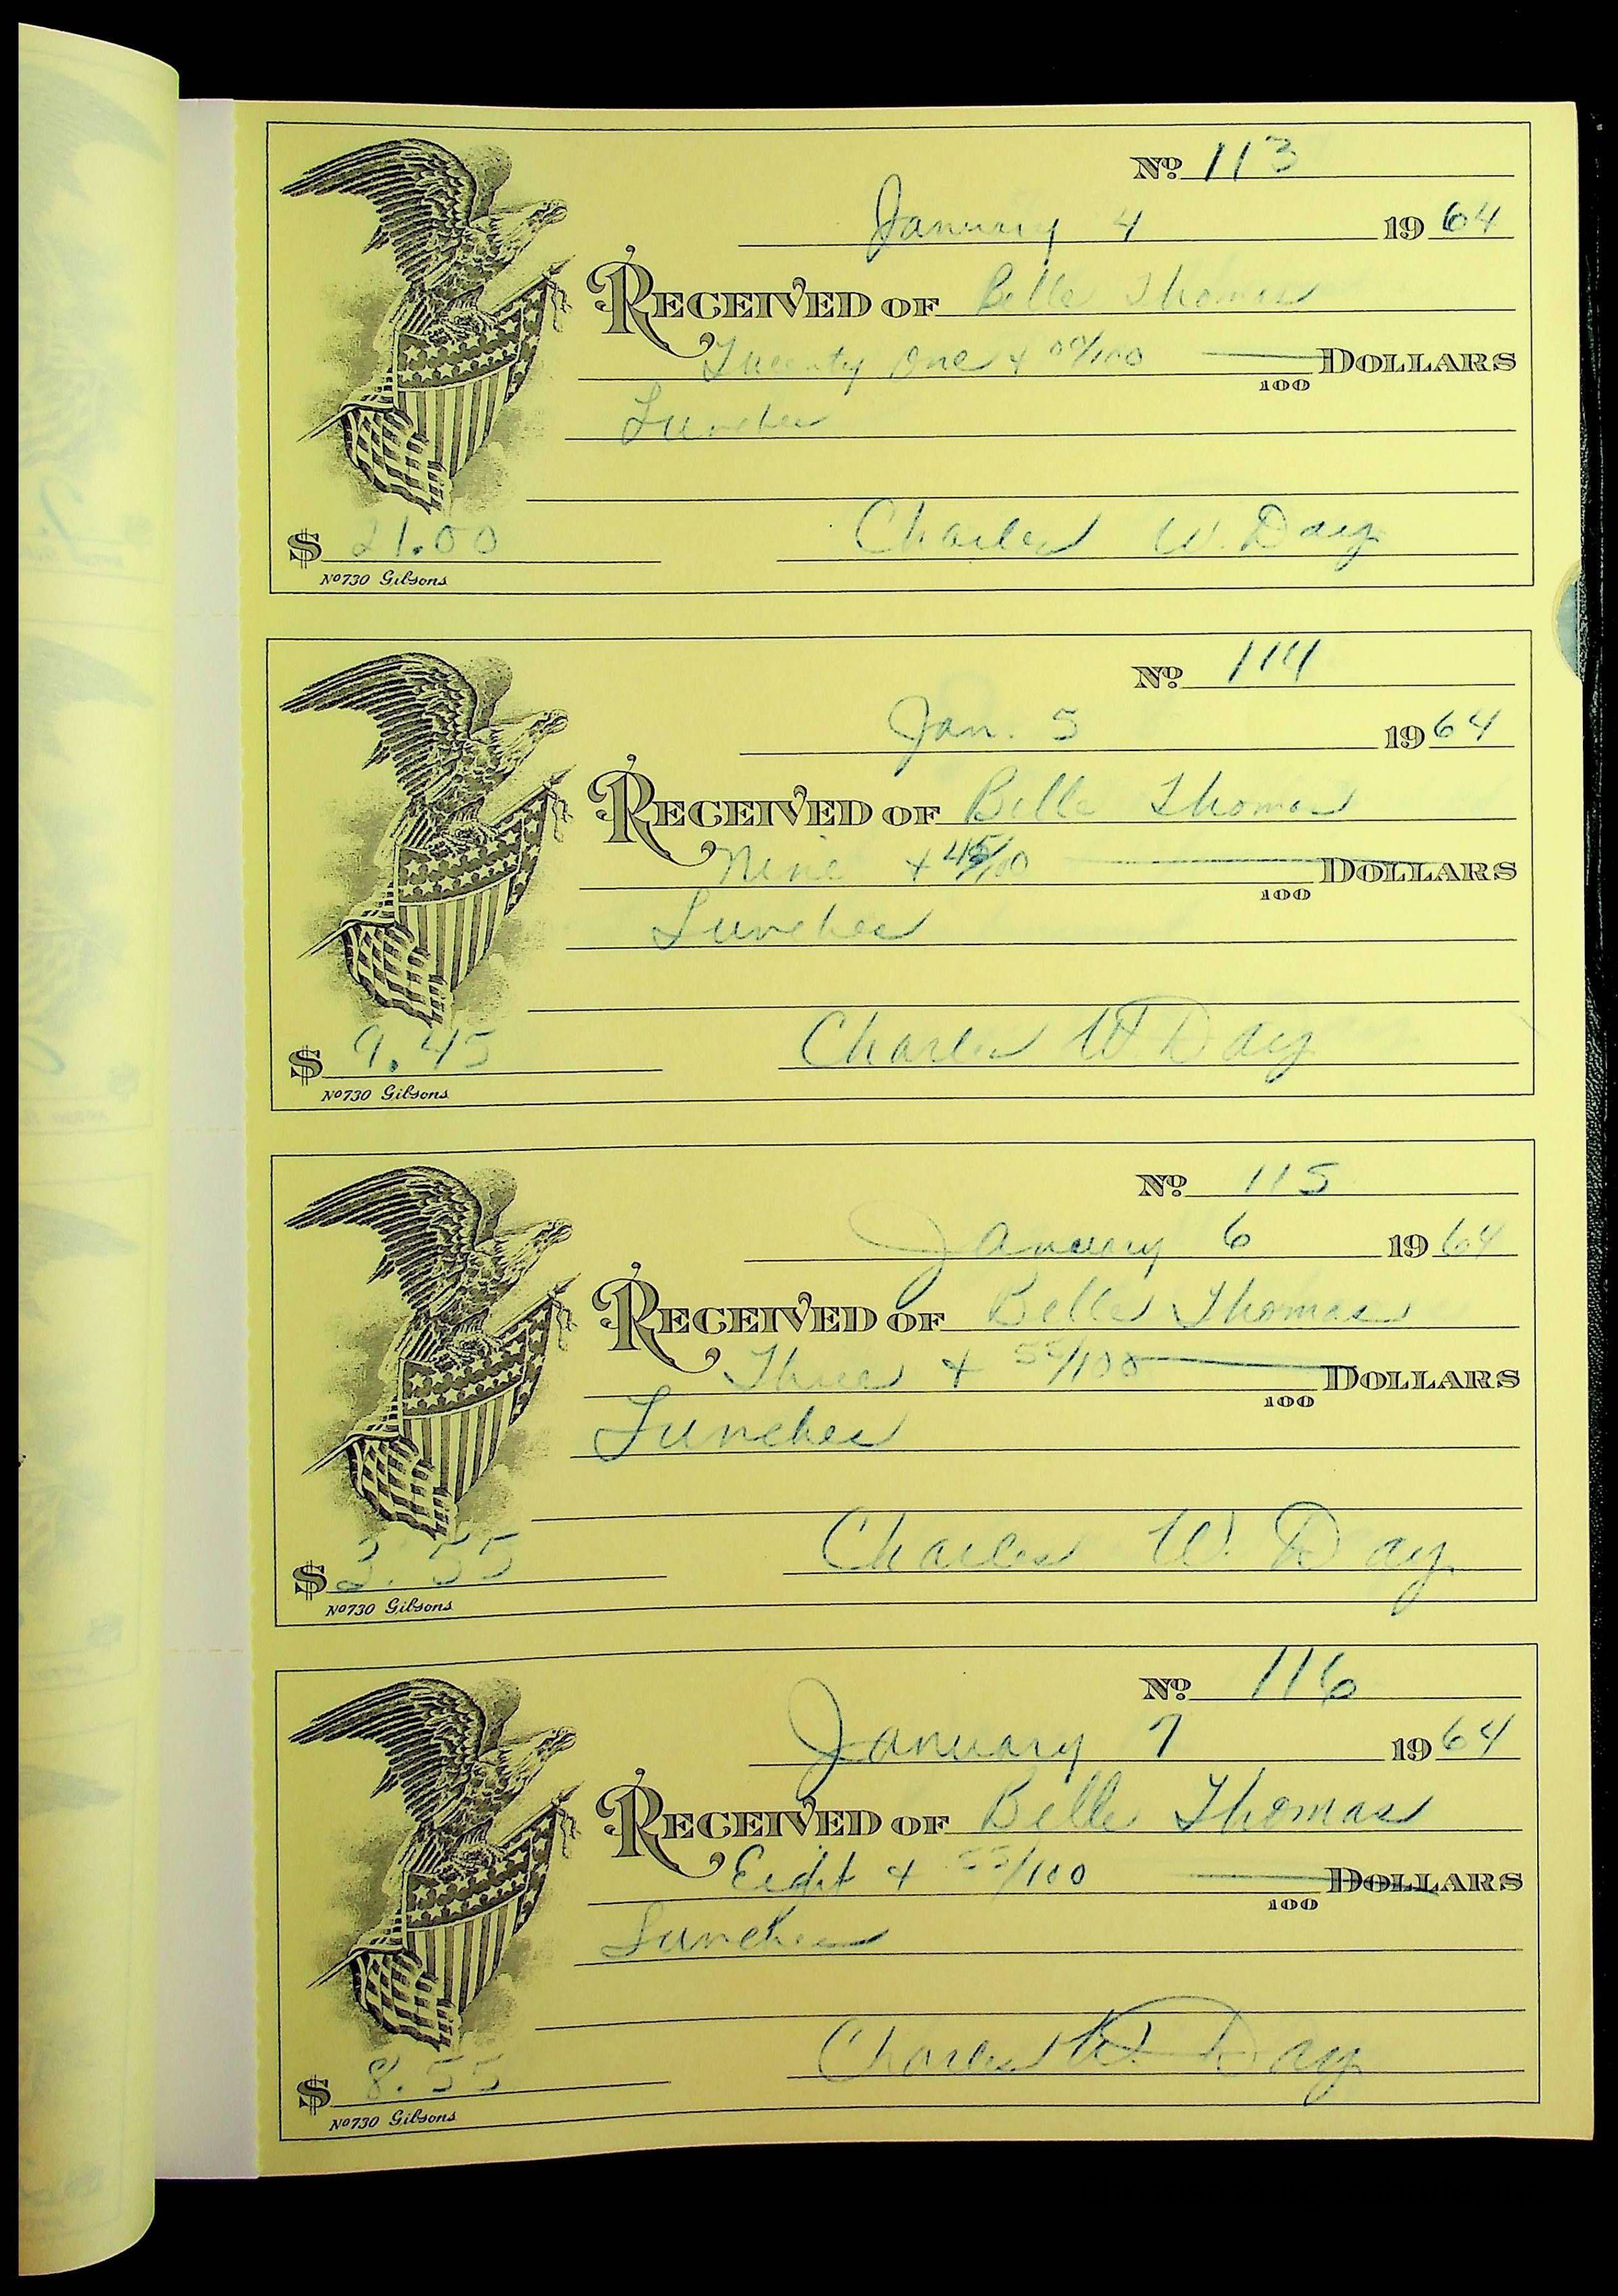 No. 113
January 4 1964
RECEIVED OF Belle Thomas
Twenty One + 00/100 DOLLARS
100
Lunches
$ 21.00 Charles W. Day
No 730 Gibsons
No. 114
Jan. 5 1964
RECEIVED OF Belle Thomas
Nine + 45/100 DOLLARS
100
Lunches
$ 9.45 Charles W Day
No 730 Gibsons
No. 115
January 6 1964
RECEIVED OF Belle Thomas
Three + 55/100 DOLLARS
100
Lunches
$ 3.55 Charles W. Day
No 730 Gibsons
No. 116
January 7 1964
RECEIVED OF Belle Thomas
Eight + 55/100 DOLLARS
100
Lunches
$ 8.55 Charles W. Day
No 730 Gibsons